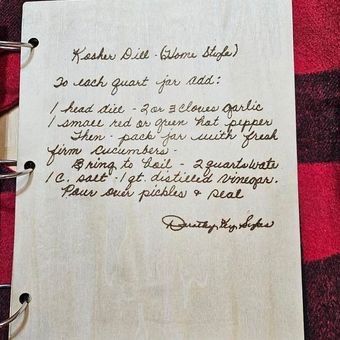 Kosher Dill - (Home Style)
To each quart jar add:
1 head dill - 2 or 3 cloves garlic
1 small red or green hot pepper
Then - pack jar with fresh
firm cucumbers -
Bring to boil - 2 quarts wate
1 C. salt - 1 qt. distilled vinegar.
Pour over pickles & seal
Dorothy